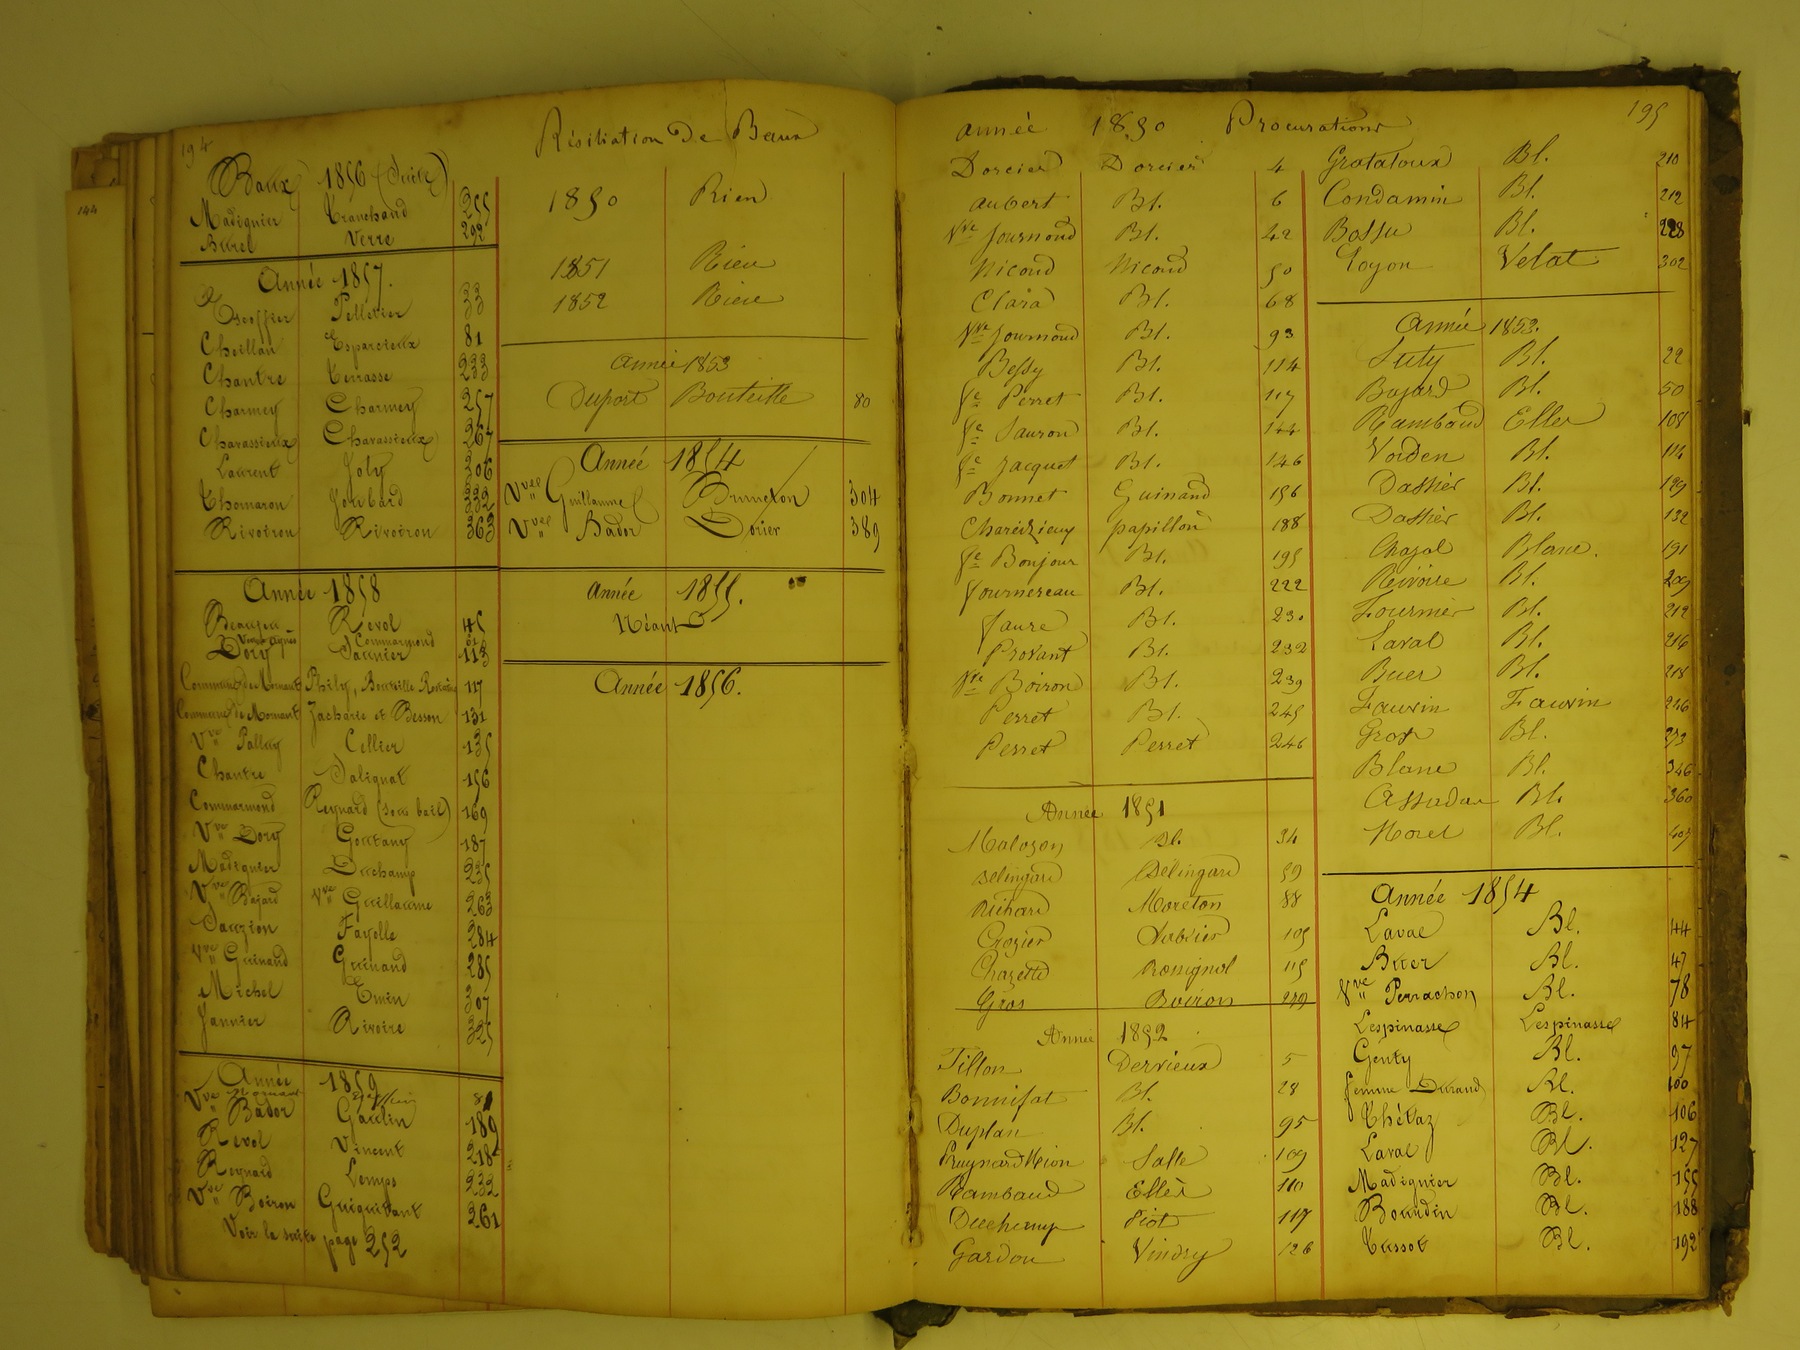 194
Baux 1856 (Suite)
Madignier Tranchand 255
Burel Verre 292
Année 1857.
Escoffier Pelletier 33
Cheillan Esparcieux 81
Chantre Terrasse 233
Charmey Charmey 257
Charassieux Charassieux 267
Laurent Joly 306
Thomaron Joubard 332
Rivoiron Rivoiron 363
Année 1858
Beaujeu Revol 45
Commarmond 61
Dory Saunier 113
Commune de Mornant Phily, Bouteille 117
Commune de Mornant Zacharie et Besson 131
Vve Palluy Cellier 135
Chantre Salignat 156
Commarmond Reynard (sous bail) 169
Vve Dory Goutany 187
Madignier Duchamp 235
Vve Bajard Vve Guillaume 263
Sauzion Fayolle 284
Vve Guinand Guinand 285
Michel Emin 307
Jannier Rivoire 325
Année 1859
Vve Bador Gaudin 189
Revol Vincent 218
Reynard Lemps 232
Vve Boiron Guiguitant 261
Voir la suite page 252
Résiliation De Baux
1850 Rien
1851 Rien
1852 Rien
Année 1853
Duport Bouteille 80
Année 1854
Vve Guillaume Bruneton 304
Vve Bador Dorier 389
Année 1855.
Néant
Année 1856.
195
année 1850 Procurations
Dorcier Dorcier 4
Aubert Bl. 6
Vve Journoud Bl. 42
Nicoud Nicoud 50
Clara Bl. 68
Vve Journoud Bl. 93
Bessy Bl. 114
fe Perret Bl. 117
fe Sauron Bl. 144
fe Jacquet Bl. 146
Bonnet Guinand 156
papillon 188
fe Bonjour Bl. 195
fournereau Bl. 222
faure Bl. 230
Provant Bl. 232
Vve Boiron Bl. 239
Perret Bl. 245
Perret Perret 246
Année 1851
Malozon Bl. 34
Delingard Délingard 59
Richard Moreton 88
Crozier 105
Chazette Rossignol 115
Gros Boiron 249
Année 1852
Tillon Dervieux 5
Bonnifat Bl. 28
Duplan Bl. 95
Salle 109
Rambaud Ellès 110
Duchamp Piot 117
Gardon Vindry 126
Grataloux Bl. 210
Condamin Bl. 212
Bossu Bl. 228
Loyon Velat 302
Année 1853.
Suty Bl. 22
Bajard Bl. 50
Rambaud Elles 108
Voiden Bl. 114
Dassier Bl. 129
Dassier Bl. 132
Chazal Blanc. 191
Rivoire Bl. 209
Fournier Bl. 212
Laval Bl. 216
Buer Bl. 218
Fauvin Fauvin 246
Gros Bl. 273
Blanc Bl. 346
Assada Bl. 360
Morel Bl. 407
Année 1854
Laval Bl. 44
Buer Bl. 47
Vve Perrachon Bl. 78
Lespinasse Lespinasse 84
Genty Bl. 97
femme Durand Bl. 100
Thétaz Bl. 106
Laval Bl. 127
Madignier Bl. 155
Bourdin Bl. 188
Tussot Bl. 192
144